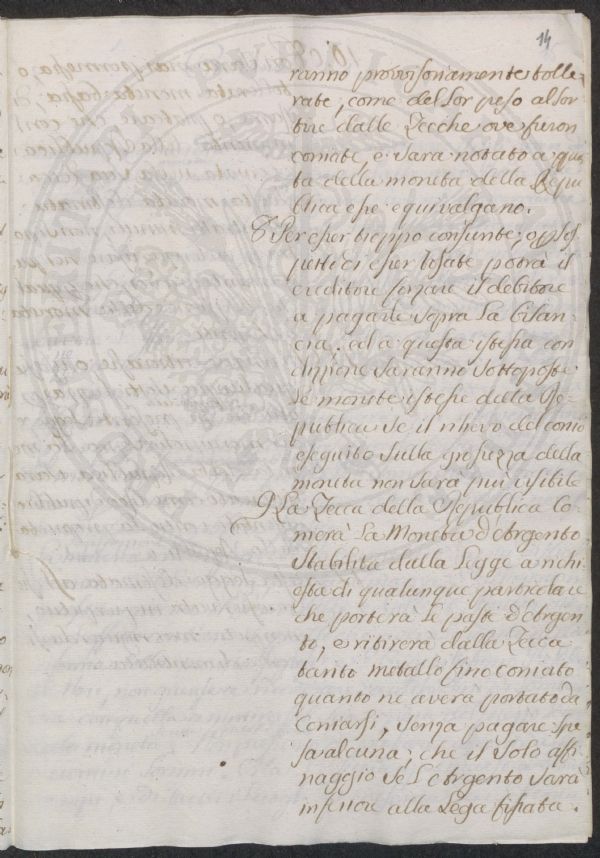 14
ranno provvisoriamente tolle
rate, come del lor peso al sor
tire dalle Zecche ove furon
coniate, e sarà notato a quo
ta della moneta della Repu
blica che equivalgano.
8 Per esser troppo consunte, o sos
petti di esser tosate potrà il
creditore forzare il debitore
a pagarle sopra La bilan
cia. ed a questa istessa con
dizione saranno sottoposte
Le monete istesse della Re
publica se il rilievo del conio
eseguito sulla grosezza della
moneta non sarà più visibile
9 La Zecca della Republica Co
nierà La Moneta d'Argento
stabilita dalla Legge a richi
esta di qualunque particolare
che porterà Le paste d'Argen
to, e ritirerà dalla Zecca
tanto metallo fino coniato
quanto ne averà portato da
Coniarsi, senza pagare spe
sa alcuna; che il solo affi
naggio se L'Argento sarà
inferiore alla Lega fissata.